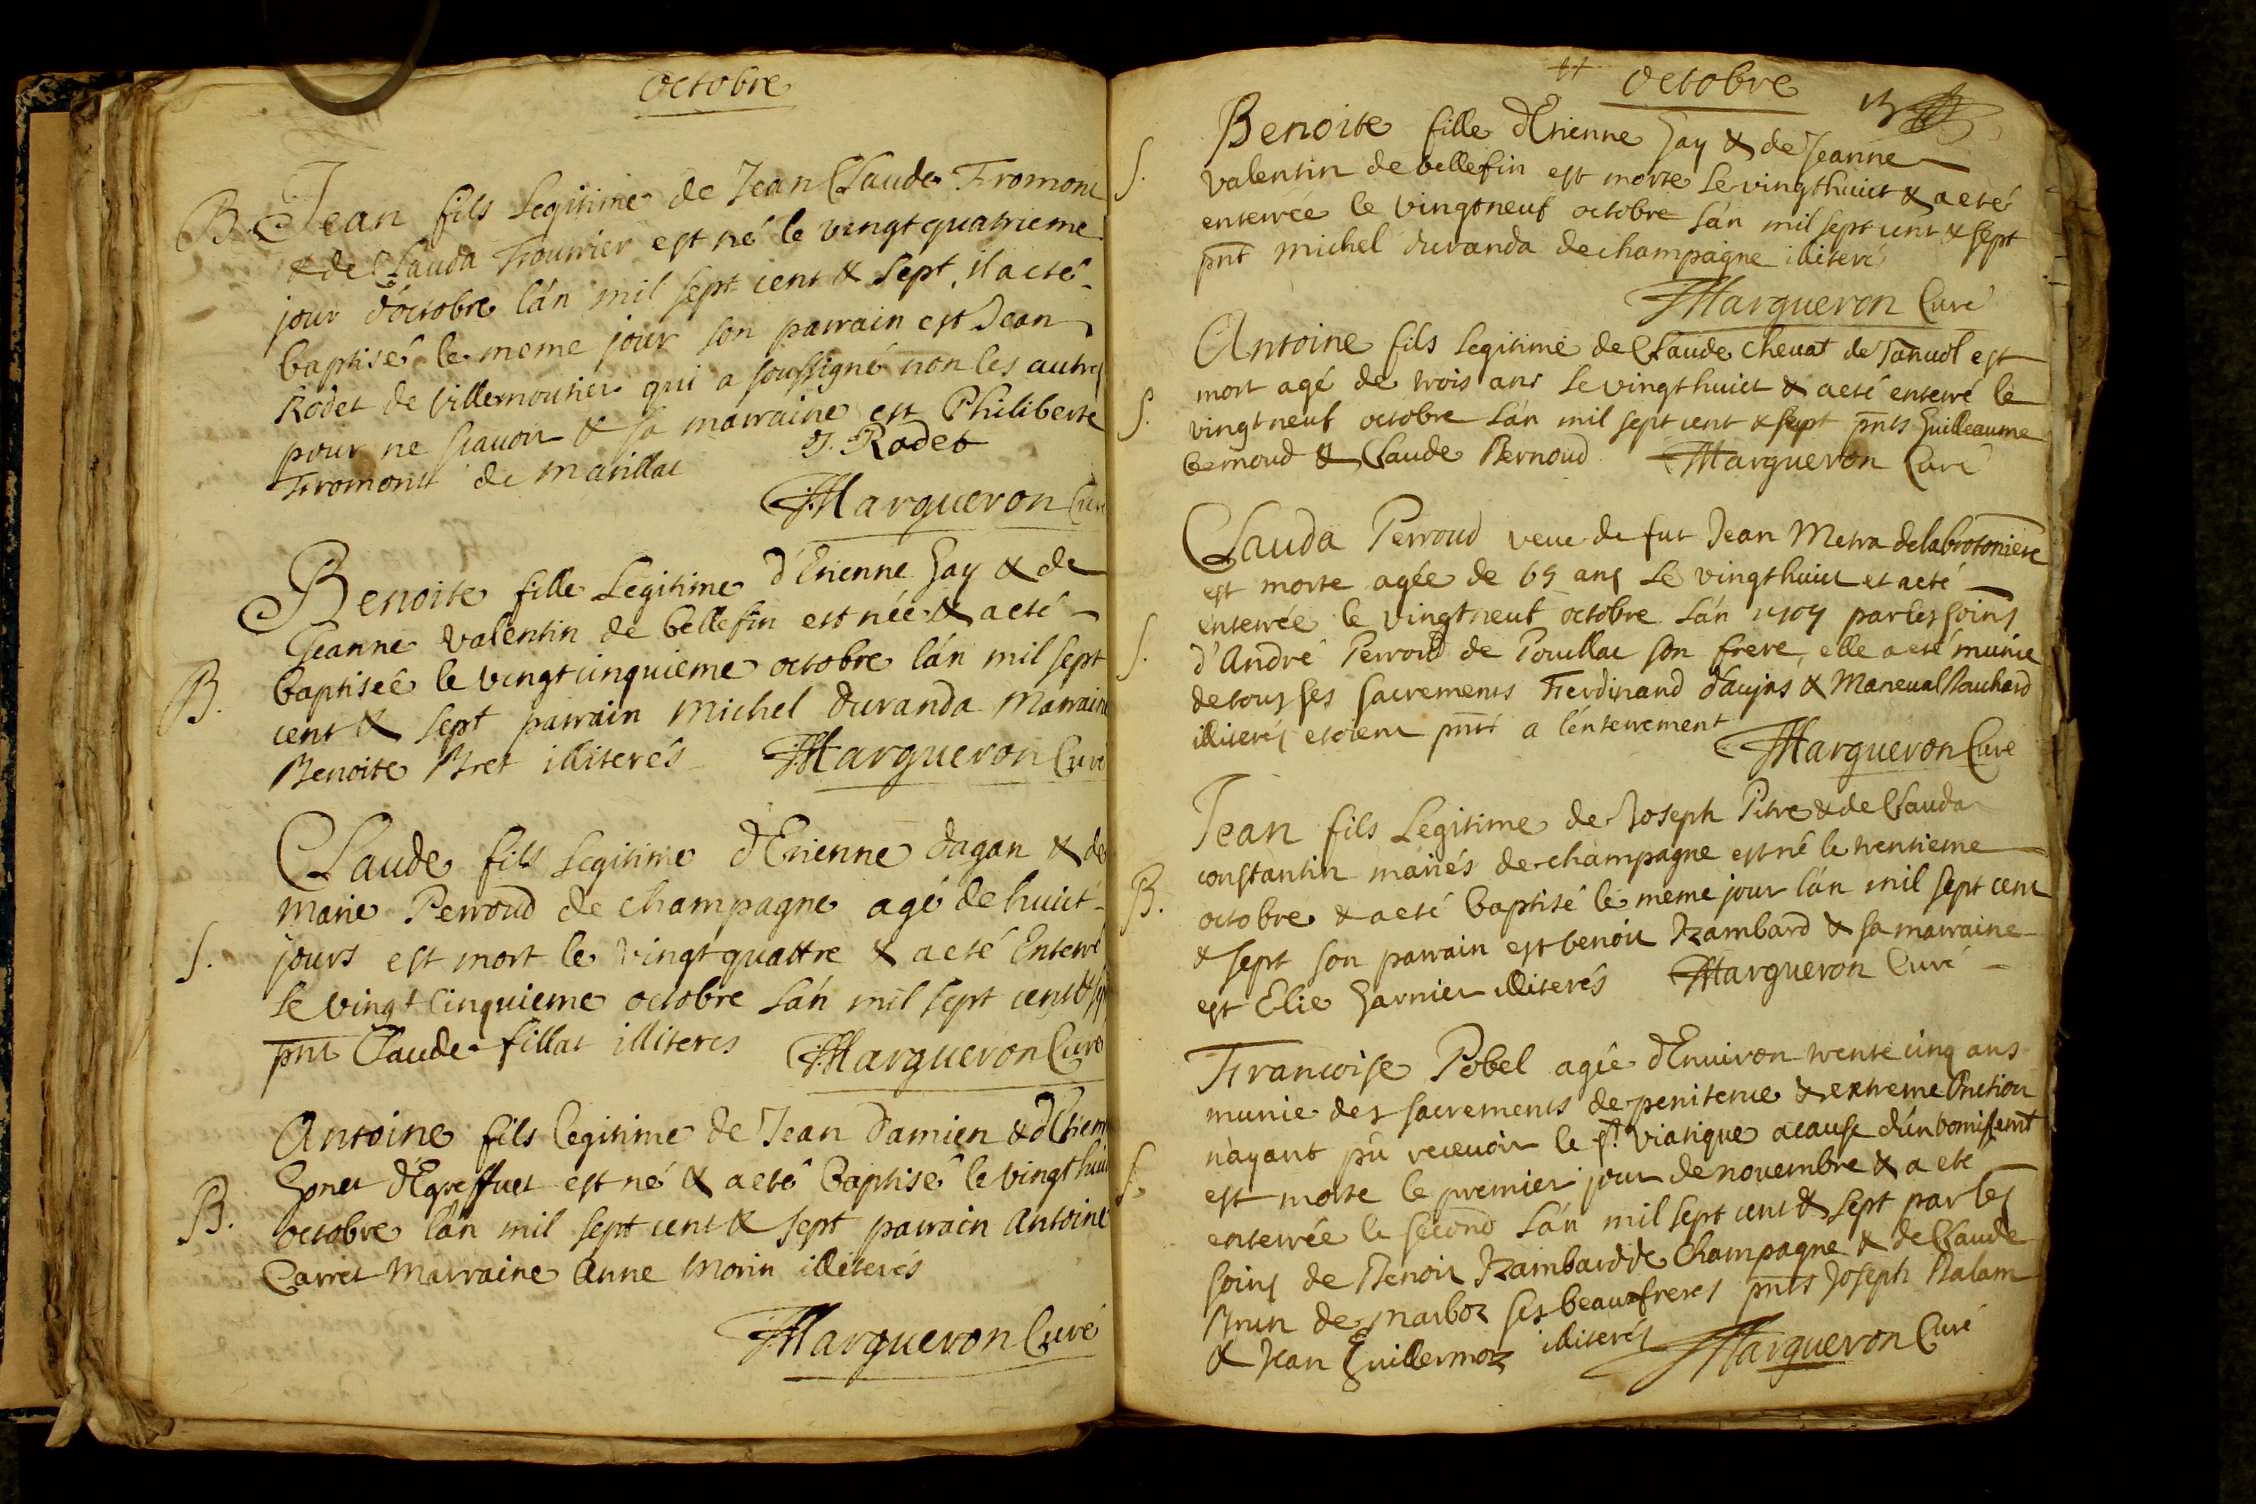 octobre
B. Jean fils Legitime de Jean Claude Fromont
& de Clauda Fourrier est né le vingt quatrieme
jour d'octobre l'án mil sept cent & sept, il a eté
baptisé le meme jour son parrain est Jean
Rodet de Villemoutier qui a soussigné non les autres
pour ne scauoir & sa marraine est Philiberte
Fromont de Marillat
J. Rodet
Margueron Curé
Benoite fille Legitime d'Etienne Gay & de
Jeanne Valentin de bellefin est née & a eté
B. baptiseé le vingt cinquieme octobre l'án mil sept
cent & sept parrain Michel duranda Marraine
Benoite Bret illiterés Margueron Curé
Claude fils Legitime d'Etienne dagan & de
Marie Perroud de champagne agé de huict
S. jours est mort le vingt quattre & a eté Enterré
le vingt Cinquieme octobre L'án mil sept cent & sept
pnt Claude fillat illiteres Margueron Curé
Antoine fils legitime de Jean Damien & d'Etien
Gonet d'Egreffuet est né & a eté baptisé le vingt huict
B. octobre l'án mil sept cent & sept parrain Antoine
Carret Marraine Anne Morin illiterés
Margueron Curé
octobre
Benoite fille d'Etienne Gay & de Jeanne
S. Valentin de bellefin est morte le vingt huict & a eté
enterrée le vingt neuf octobre l'án mil sept cent & sept
pnt Michel duranda de champagne illiteré
Margueron Curé
Antoine fils Legitime de Claude cheuat de est
mort agé de trois ans le vingt huict & a eté enterré le
S. vingt neuf octobre l'án mil sept cent & sept pnts Guilleaume
bernoud & Claude Bernoud Margueron Curé
Clauda Perroud veue de fut Jean Metra de labrotoniere
est morte agée de 65 ans le vingt huict et a eté
enterrée le vingt neuf octobre l'án 1707 par les soins
S. d'André Perroud de Pouillac son frere, elle a eté munie
de tous ses sacrements Ferdinand daujas & Maneual
illiterés etoient pnts a l'énterrement
Margueron Curé
Jean fils Legitime de Joseph Pitre & de Clauda
constantin mariés de champagne est né le trentieme
B. octobre & a eté baptisé le meme jour l'án mil sept cent
& sept son parrain est benoit Rambard & sa marraine
est Elie Garnier illiterés Margueron Curé
Francoise Pobel agée d'Enuiron trente cinq ans
munie des sacrements de penitence & extreme Onction
n'ayant pû receuoir le st. Viatique a cause d'ún vomissemt
S. est morte le premier jour de nouembre & a eté
enterrée le second l'án mil sept cent & sept par les
soins de Benoit Rambard de Champagne & de Claude
Brun de Marboz ses beaux freres pnts Joseph Balam
& Jean Guillermoz illiterés Margueron Curé